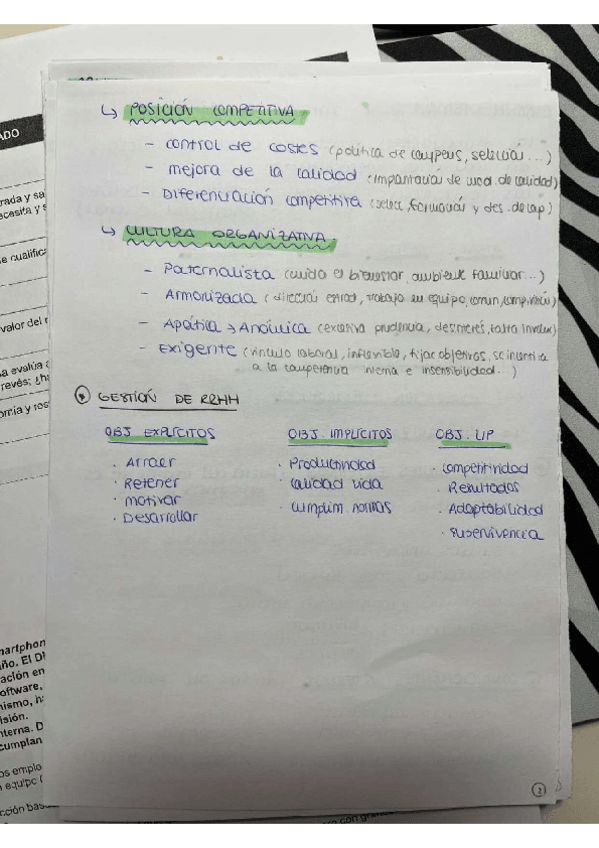 ↳ POSICIÓN COMPETITIVA
- control de costes (política de compens, selección...)
- mejora de la calidad (implantación de mod. de calidad)
- Diferenciación competitiva (selecc, formación y des. de cap)
↳ CULTURA ORGANIZATIVA
- Paternalista (cuida el bienestar, ambiente familiar...)
- Armonizada (dirección estrat, trabajo en equipo, comun,
- Apática → Anómica (excesiva prudencia, desinterés, falta
- Exigente (vínculo laboral, inflexible, fijar objetivos, se incentiva
a la competencia interna e insensibilidad...)
GESTIÓN DE RRHH
OBJ. EXPLÍCITOS
· Atraer
· Retener
· motivar
· Desarrollar
OBJ. IMPLÍCITOS
· Productividad
· calidad vida
· cumplim. normas
OBJ. L/P
· competitividad
· Resultados
· Adaptabilidad
· supervivencia
2
ADO
rada y sa
ecesita y s
e cualific
valor del r
a evalúa
revés; ¿ha
omía y res
martphon
ño. El Di
ación en
oftware,
nismo, h
isión.
nterna. D
cumplan
os emplo
n equipo (
cción bas